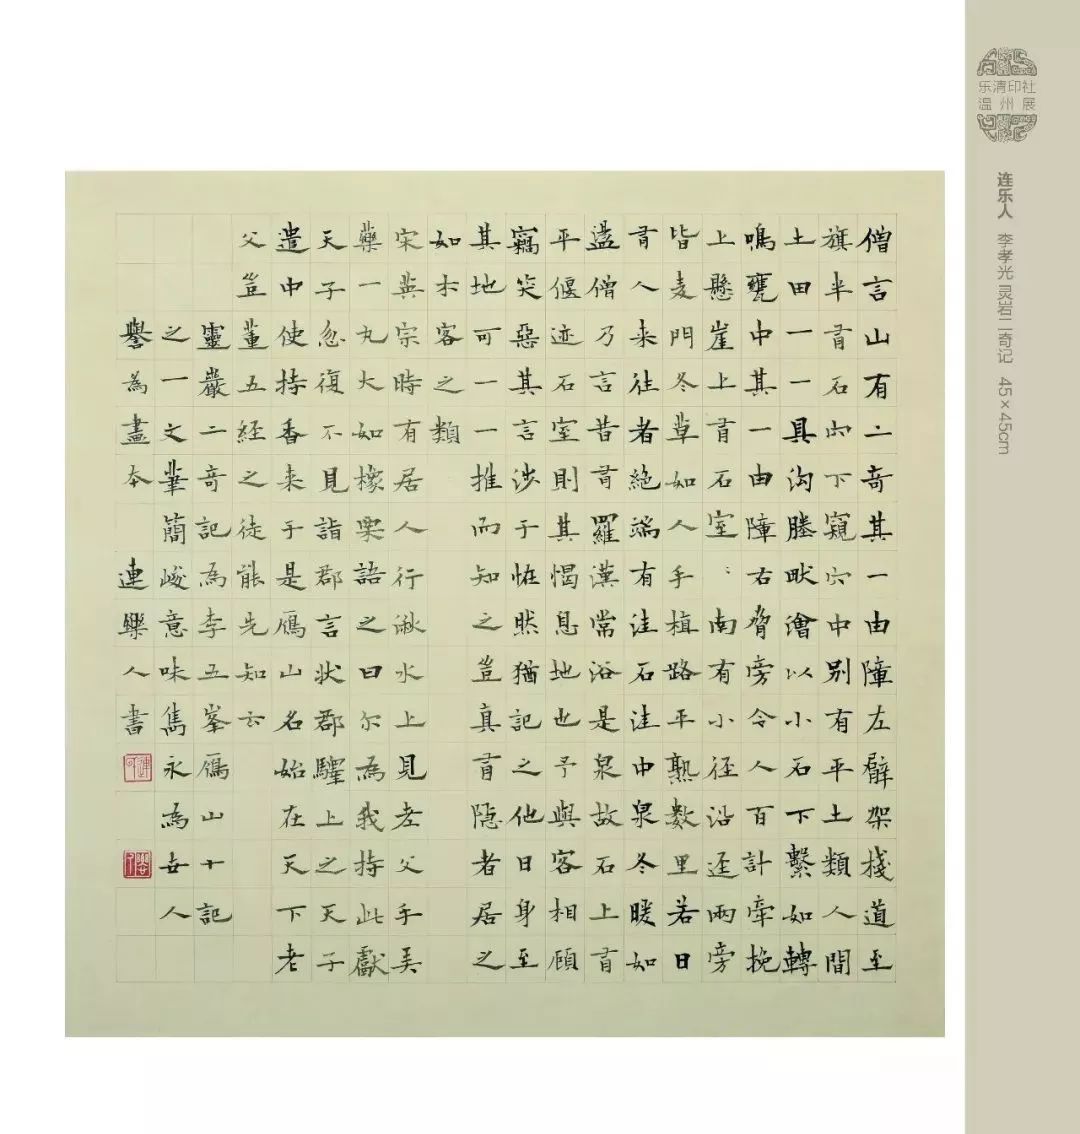 僧言山有二奇其一由障左臂架棧道至
旗半有石穴下窺穴中別有平土類人間
土田一一具溝塍畎澮以小石下擊如轉
鳴甕中其一由障右脅旁令人百計牽挽
上懸崖上有石室〻南有小徑沿崖兩旁
皆麦門冬草如人手植路平熟數里若日
有人来往者絶端有洼石洼中泉冬暖如
盪僧乃言昔有羅漢常浴是泉故石上有
平偃迹石室則其憩息地也予與客相顧
竊笑惡其言涉于怪然猶記之他日身至
其地可一一推而知之豈真有隐者居之
如木客之類
宋英宗時有居人行湫水上見老父手美
藥一丸大如橡栗語之曰尔為我持此獻
天子忽復不見詣郡言狀郡驛上之天子
遣中使持香来于是鴈山名始在天下老
父豈董五経之徒能先知云
靈巖二奇記為李五峯鴈山十記
之一文筆簡峻意味雋永為世人
譽為畫本 連樂人書
乐清印社
温州展
连乐人 李孝光 灵岩二奇记 45×45cm